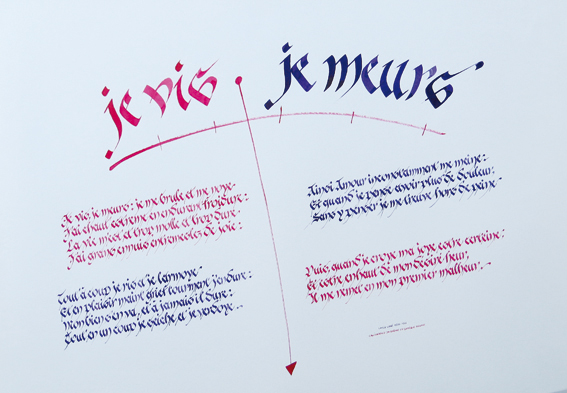 je vis
je meurs
Je vis, je meurs : je me brule et me noye.
J'ai chaut estreme en endurant froidure :
La vie m'est et trop molle et trop dure.
J'ai grans ennuis entremeslés de joie :
Tout à coup je ris et je larmoye,
Et en plaisir maint grief tourment j'endure :
Mon bien s'en va, et à jamais il dure :
Tout en un coup je seiche et je verdoye.
Ainsi Amour inconstamment me meine :
Et quand je pense avoir plus de douleur,
Sans y penser je me treuve hors de peine.
Puis, quand je croye ma joye estre certeine :
Et estre en haut de mon désiré heur,
Il me remet en mon premier malheur.